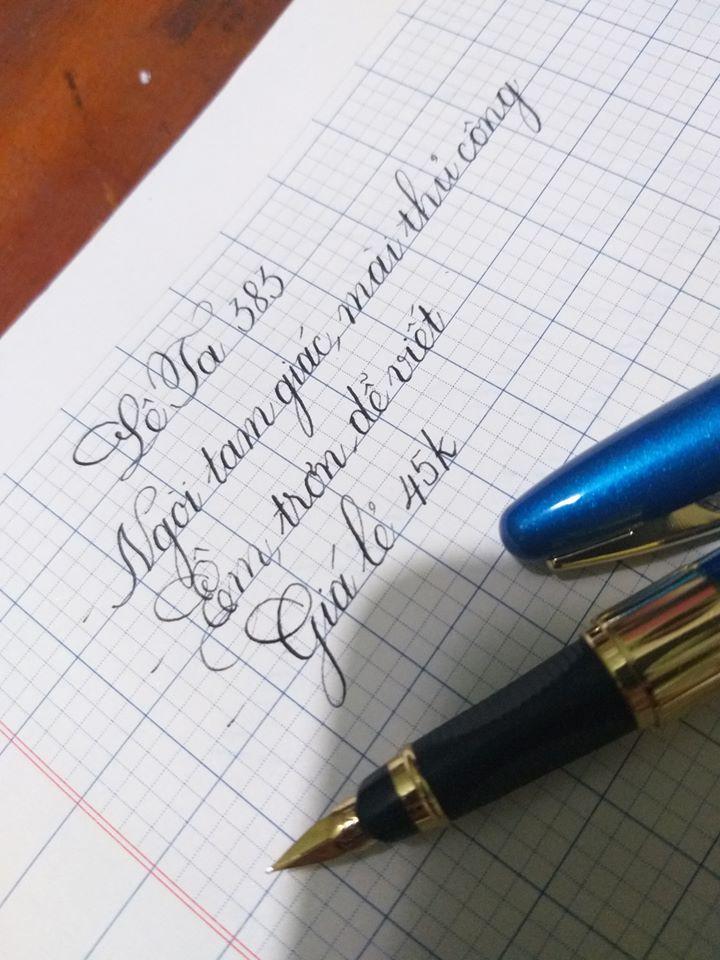 Lê Tả 383
- Ngòi tam giác, mài thủ công
- Êm, trơn, dễ viết
- Giá lẻ 45k